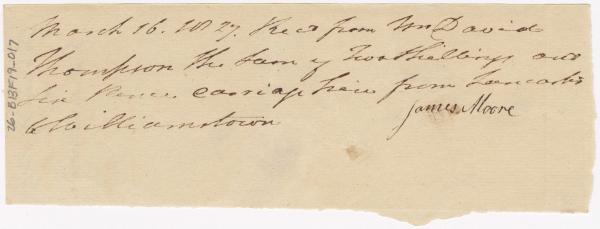 March 16. 1827. Recd from Mr David
Thompson the Sum of Two Shillings and
Six Pence carriage hire from Lancaster
to Williamstown
James Moore
26-B13F19-017